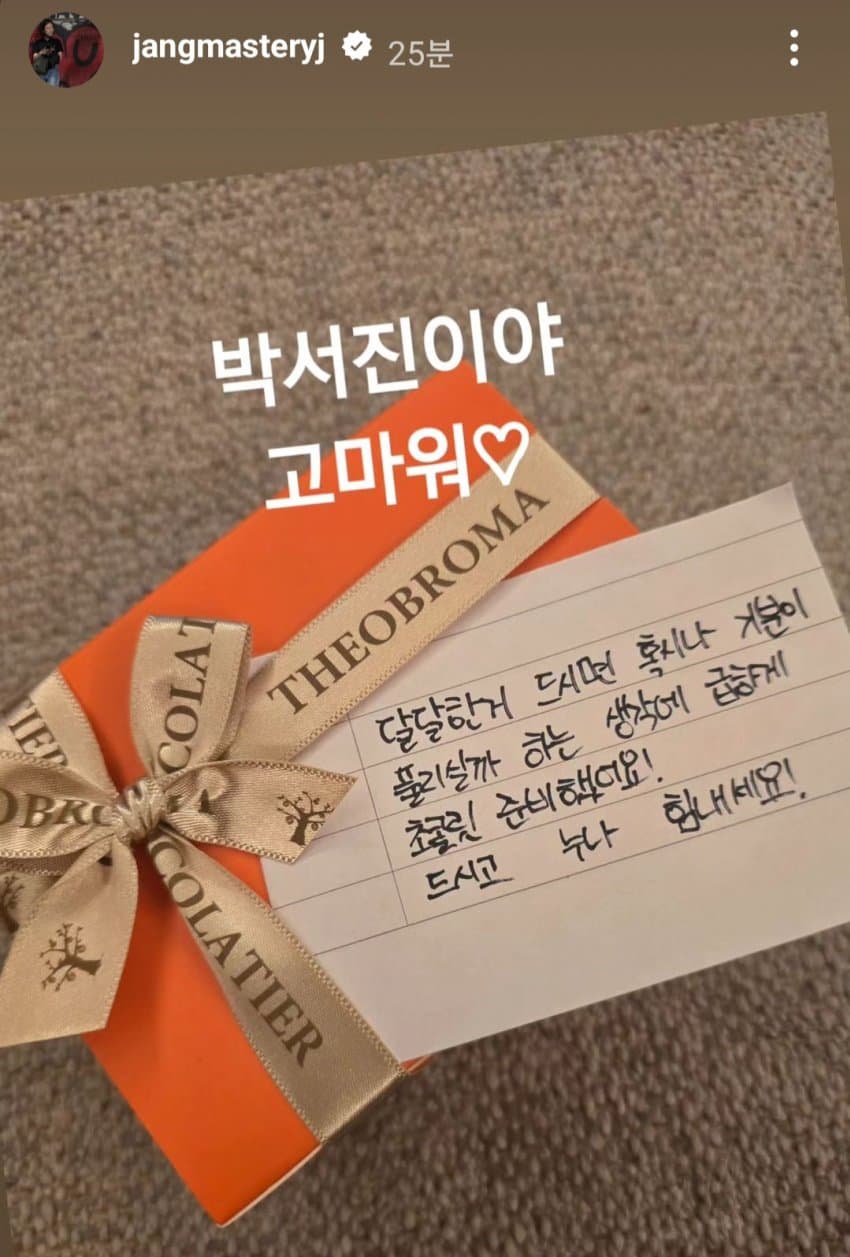 jangmasteryj 25분
박서진이야
고마워♡
THEOBROMA
COLAT
TIER
OBRO
COLATIER
달달한거 드시면 혹시나 기분이
풀리실까 하는 생각에 급하게
초콜릿 준비했어요!
드시고 누나 힘내세요!